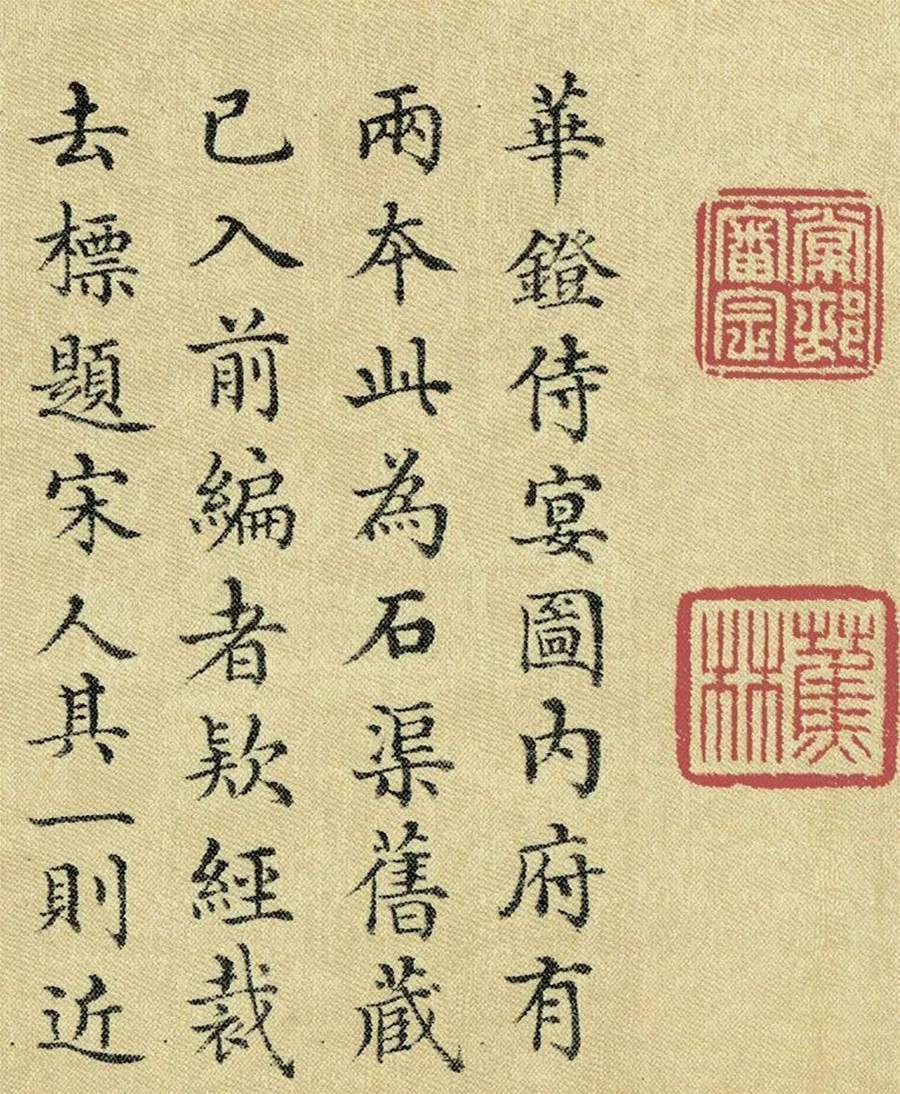 棠邨審定
蕉林
華鐙侍宴圖内府有
兩本此為石渠舊藏
已入前編者欵經裁
去標題宋人其一則近